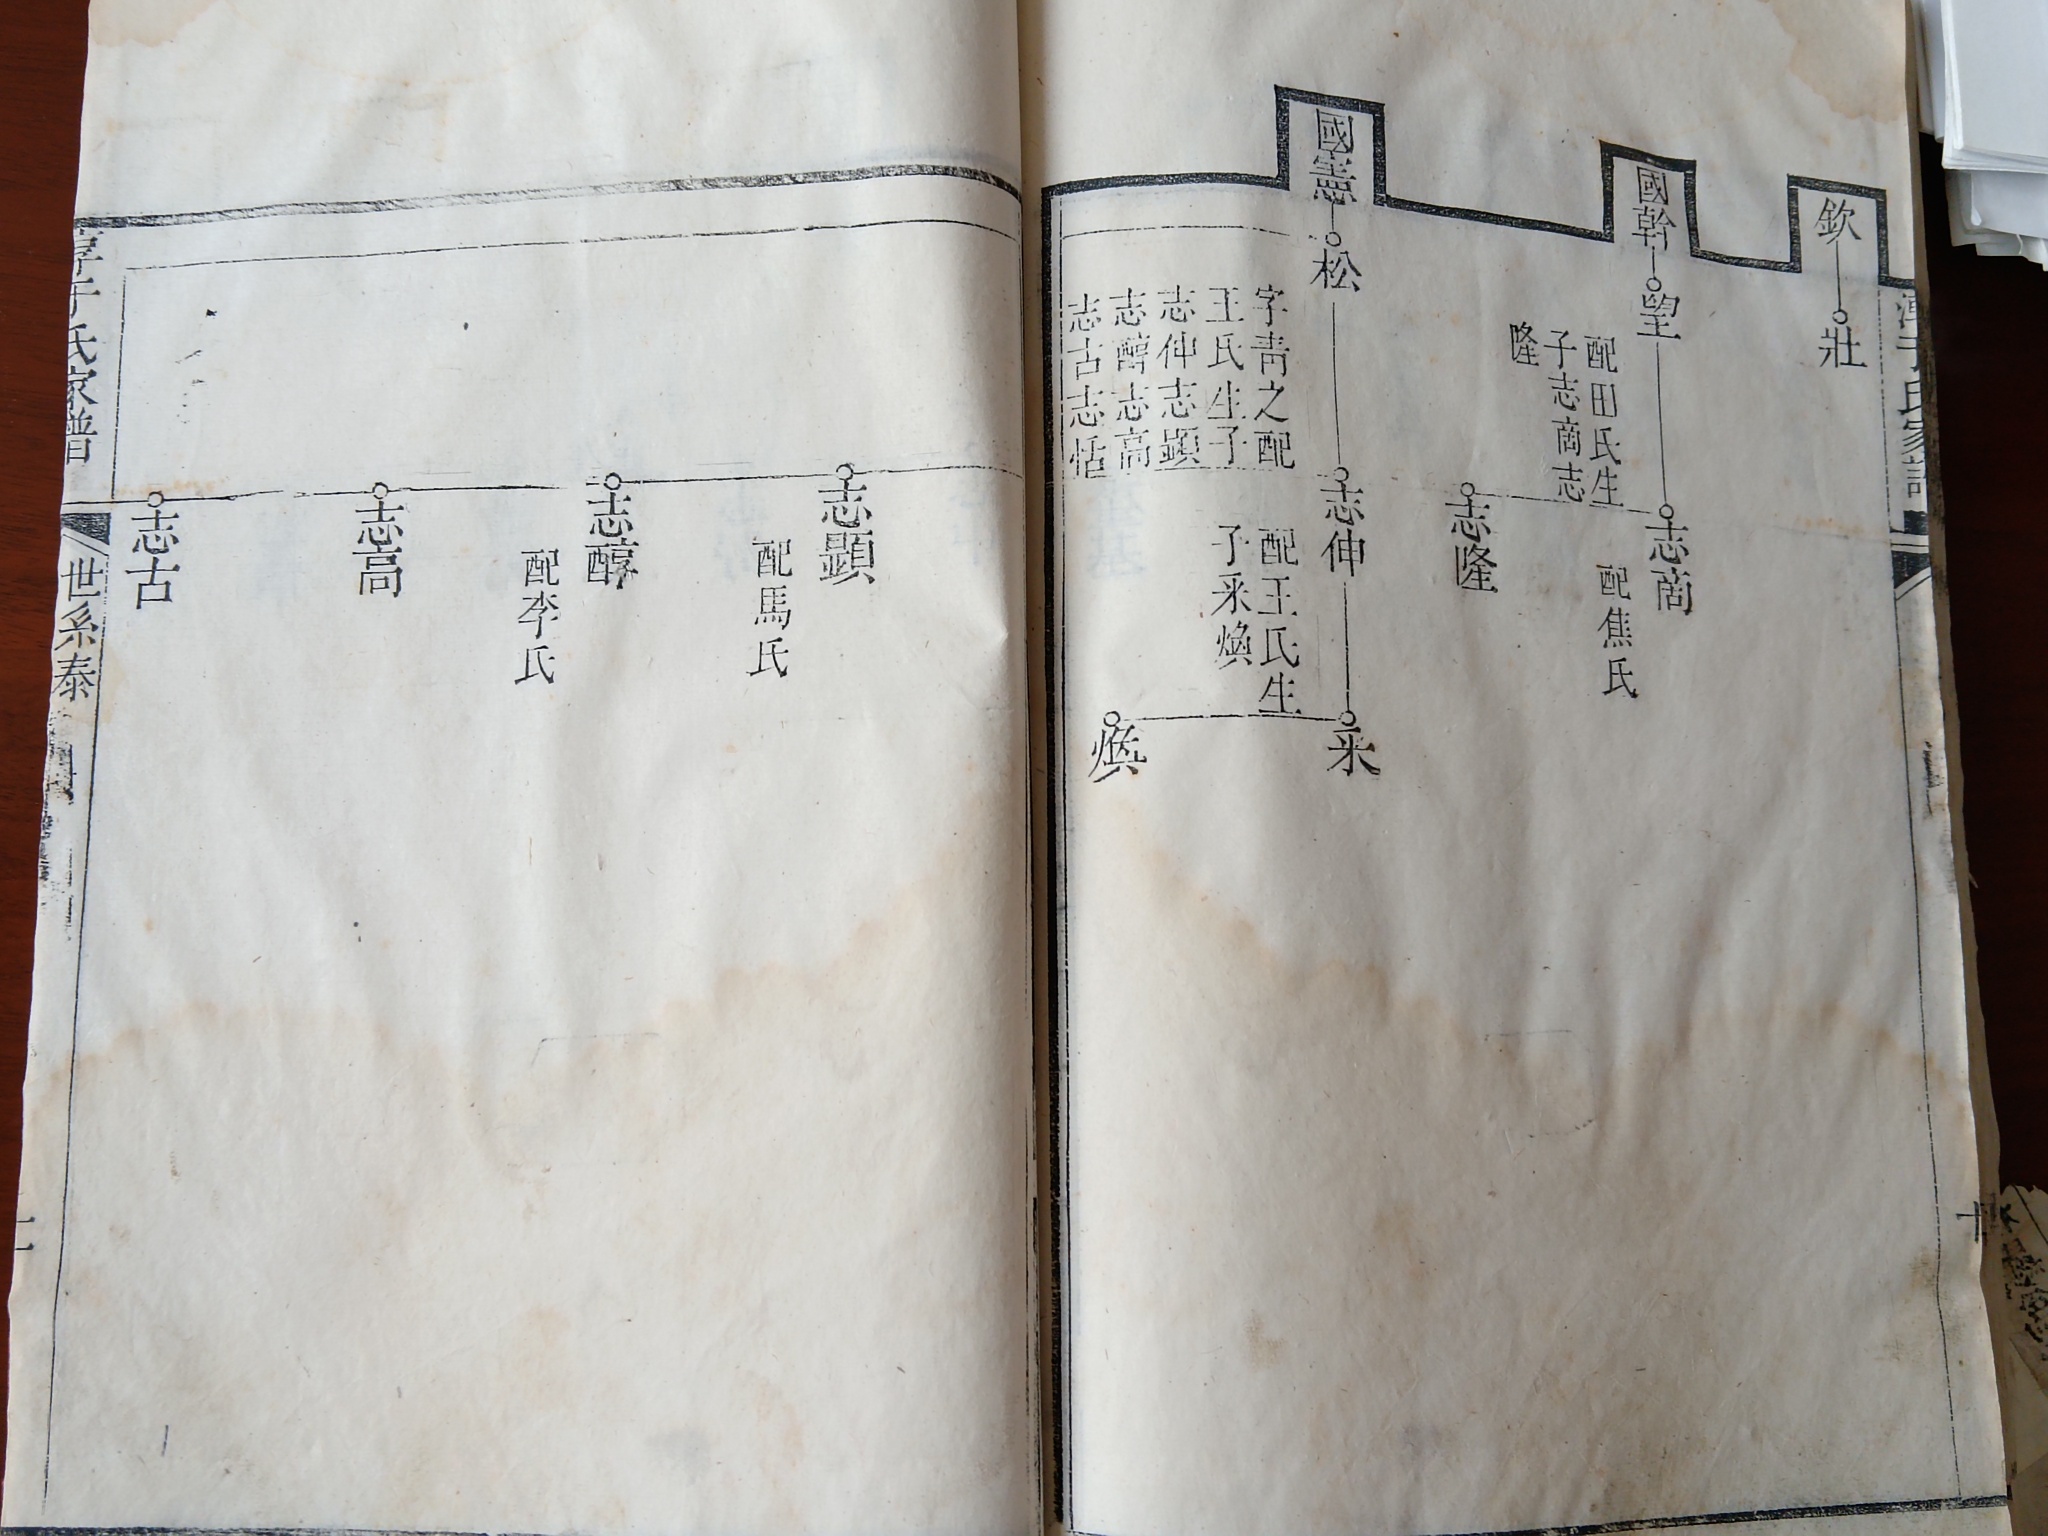 淳于氏家譜
十
欽
壯
國幹
望
配田氏生
子志啇志
隆
志啇
配焦氏
志隆
國憲
松
字靑之配
王氏生子
志伸志顯
志醇志高
志古志恬
志伸
配王氏生
子釆煥
釆
煥
志顯
配馬氏
志醇
配李氏
志高
志古
淳于氏家譜
世系泰